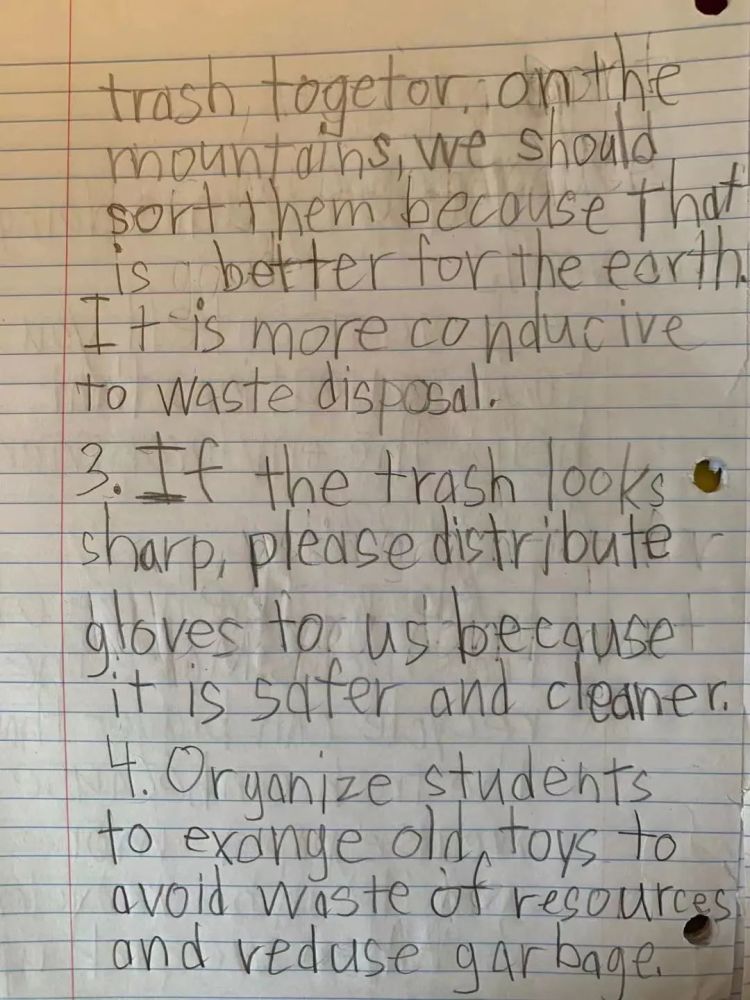 trash togetor. on the
mountains, we should
sort them because that
is better for the earth.
It is more conducive
to waste disposal.
3. If the trash looks
sharp, please distribute
gloves to us becquse
it is safer and cleaner.
4. Organize students
to exange old toys to
avoid waste of resources
and reduse garbage.